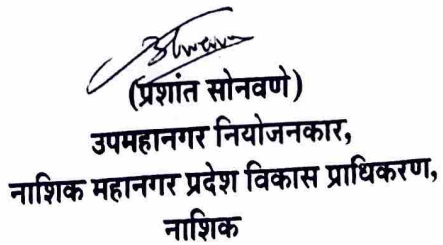 (प्रशांत सोनवणे)
उपमहानगर नियोजनकार,
नाशिक महानगर प्रदेश विकास प्राधिकरण,
नाशिक